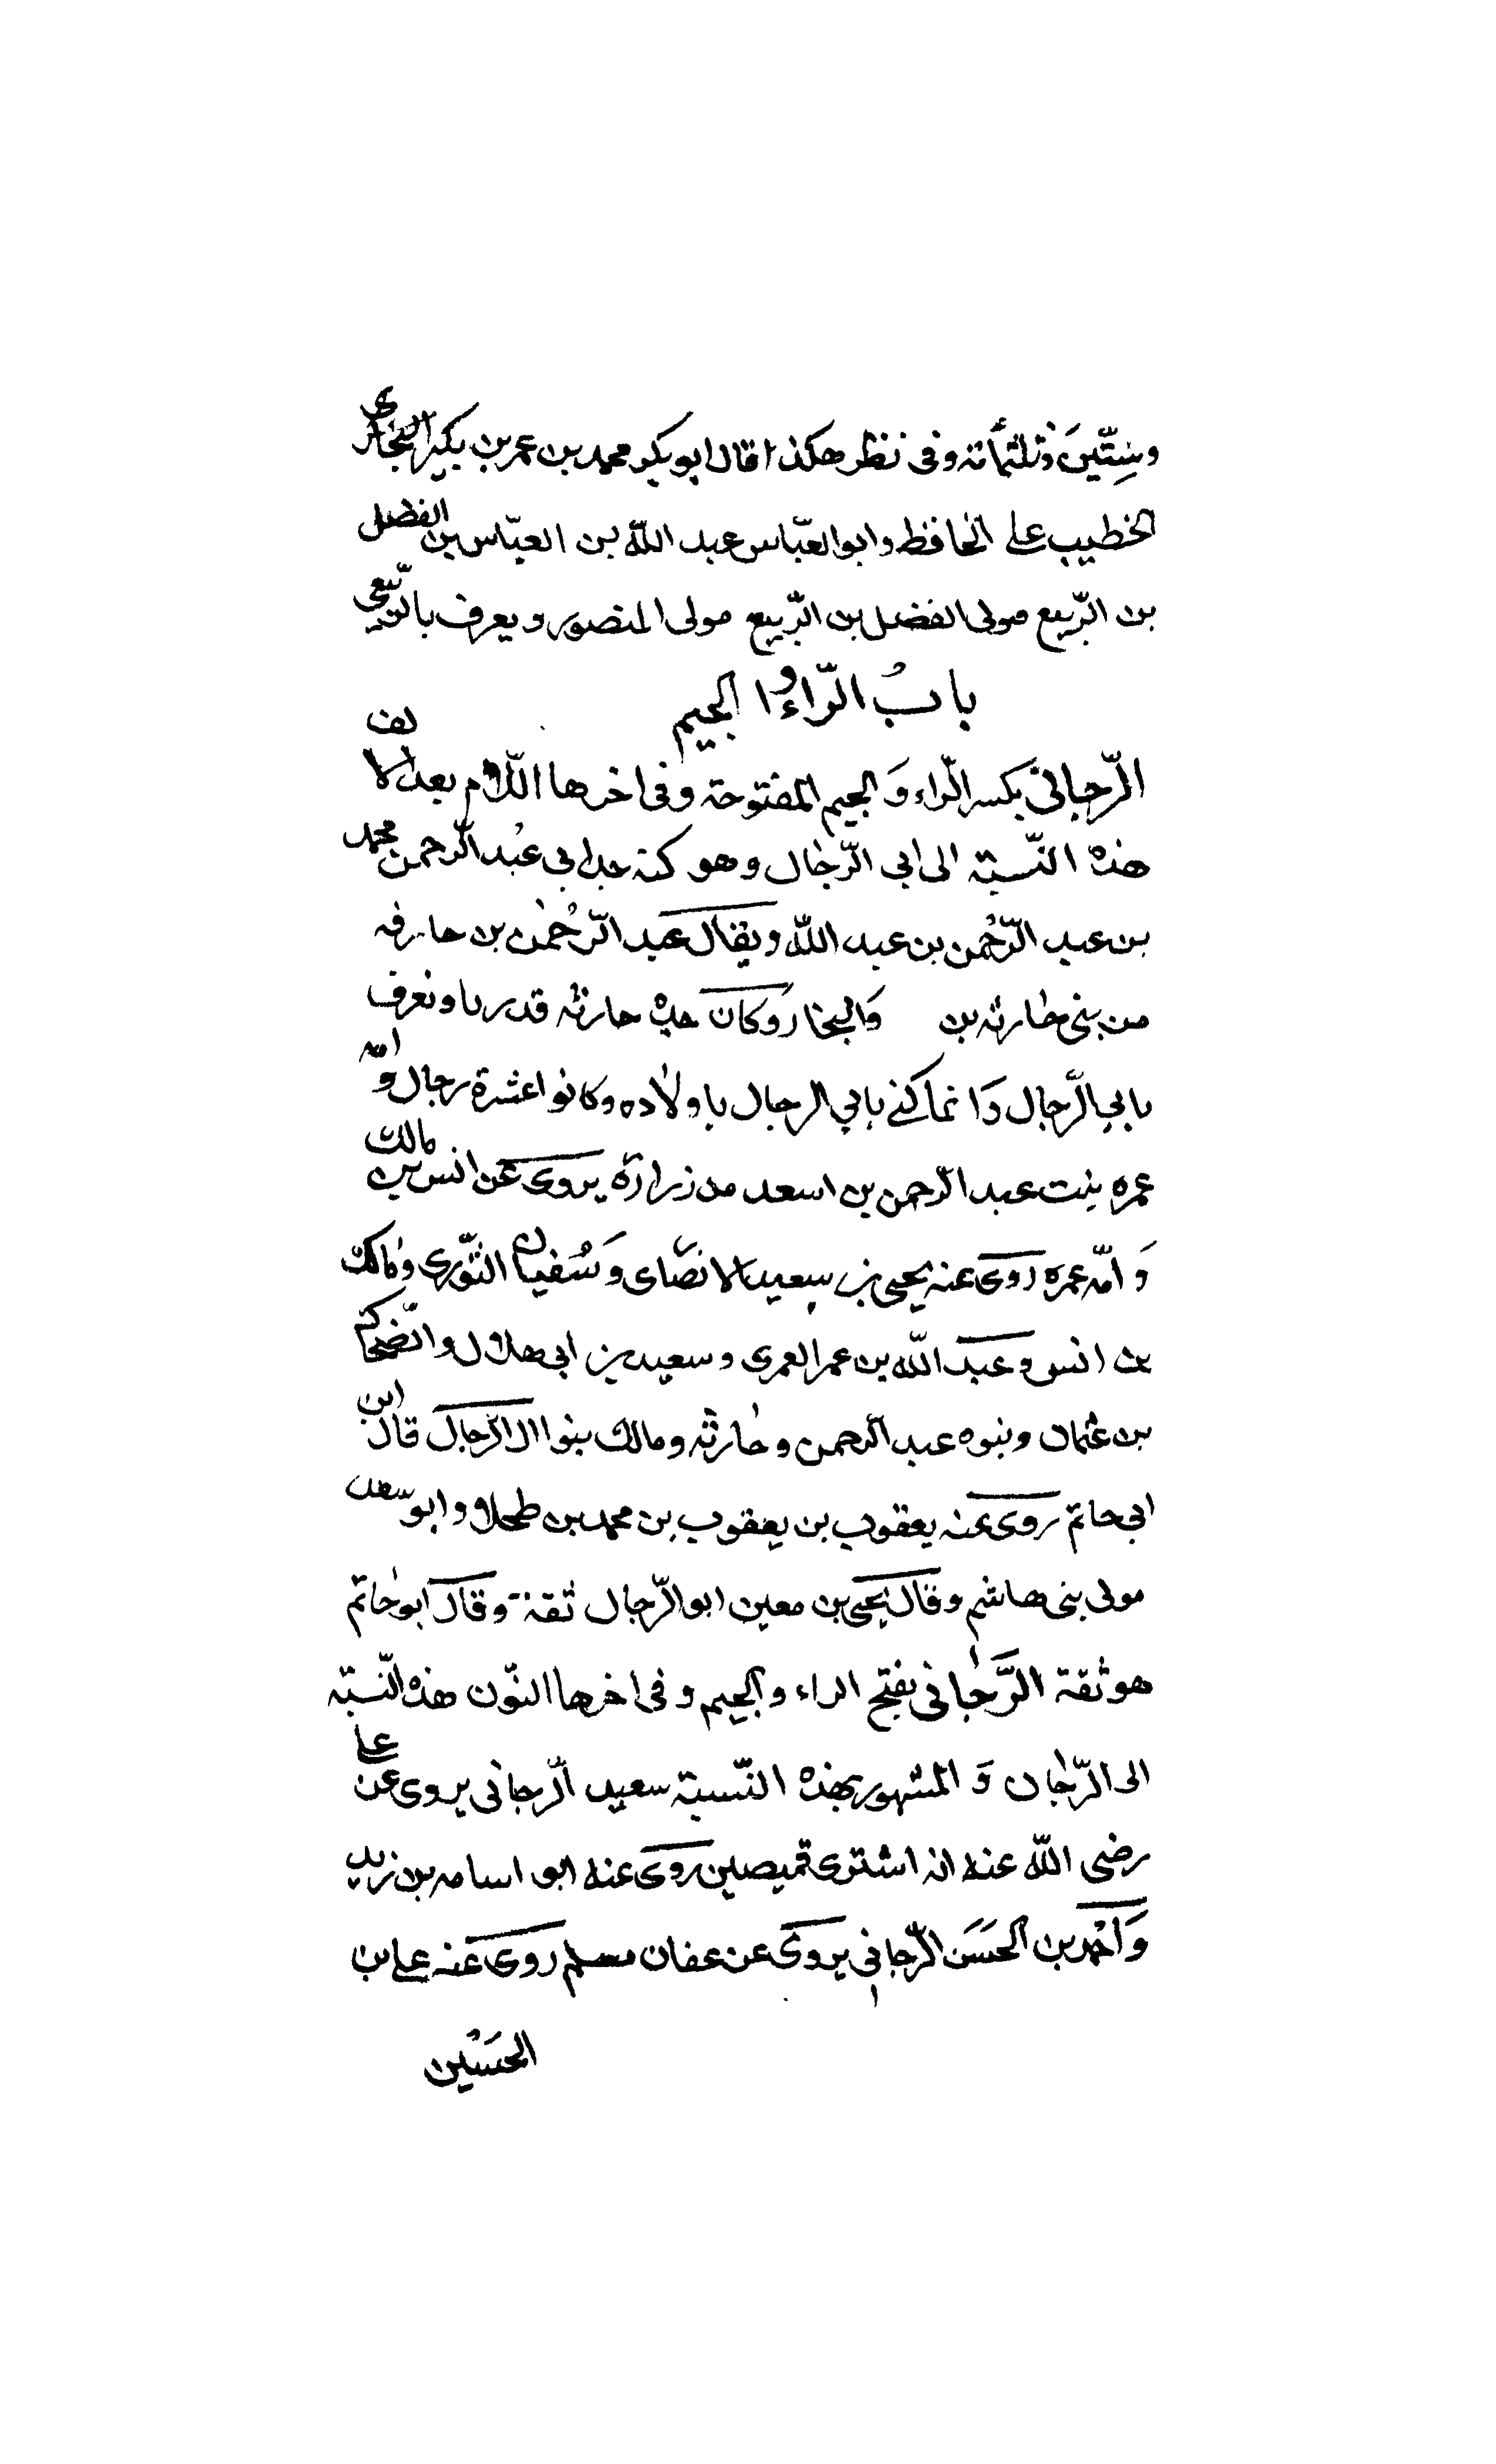 وسِتّينَ وثلثمأته وفى نظر هكذا قال ابو بكر محمد بن عمر بن بكير النجارى
الخطيب على الحافظ وابو العبّاس عبد اللّه بن العبّاس بن الفضل
بن الرّبيع مولى الفضل بن الرّبيع مولى المنصور ويعرف بالرّبيعى
بابُ الرّاء وا لجيم
الرّجالى بكسر الرّاء وَالجيم المفتوحة وفى اخرها اللّام بعد الالف
هذه النّسبته الى ابى الرّجال وهو كنة جد ابى عبد الرّحمن محمد
بن عبد الرّحمن بن عبد اللّه ويقال عبد الرّحمن بن حارفه
من بنى حارثه بن وَالنجار وَكان جده حارثه قدريا ونعرف
بابى الرّجال وَانما كنى بابى الرجال باولاده وكانوا عشرة رجال وامّه
عمره بنت عبد الرّحمن بن اسعد من زرارة يروى عن انس بن مالك
وَ امّه عمره روى عنه يحيى بن سعيد الانصاى وَسُفيان الثّورى ومالك
بن انس وعبد اللّه بن عمر العمرى وسعيد بن ابى هلال والضّحاك
بن عثمان وبنوه عبد الرحمن وحارثه ومالك بنوا ال الرّجال قال ابن
ابى حاتم روى عنه يعقوب بن يعقوب بن محمد بن طحلا وابو سعد
مولى بنى هاشم وقال يحيى بن معين ابو الرّجال ثقة وقال ابو حاتم
هو ثقة الرَّجانى بفتح الراء والجيم وفى اخرها النّون هذه النّسبته
الى الرّجان وَ المشهور بهذه النّسبة سعيد الرّجانى يروى عن على
رضى اللّه عنه انه اشترى قميصين روى عنه ابو اسامه بن زيد
وَاحْمد بن الحَسَن الرّجانى يروى عن عفان مسلم روى عنه على بن
الحَسَين